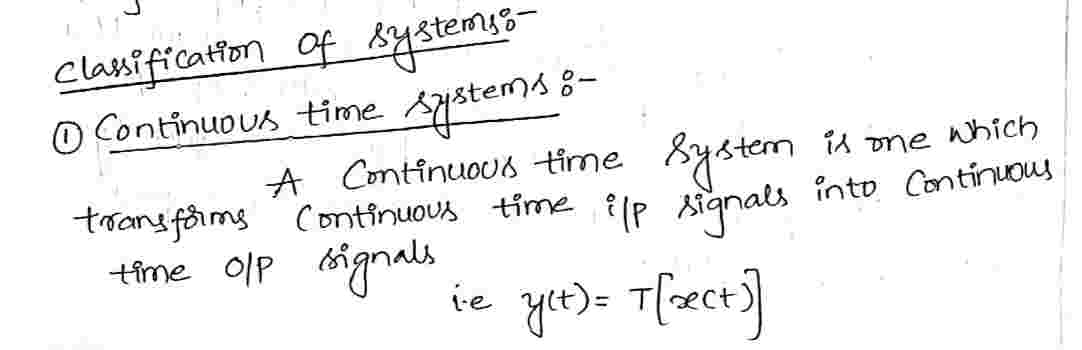 Classification of systems:-
① Continuous time systems:-
A Continuous time system is one which
transforms Continuous time i/p signals into Continuous
time o/p signals
i.e y(t) = T[x(t)]